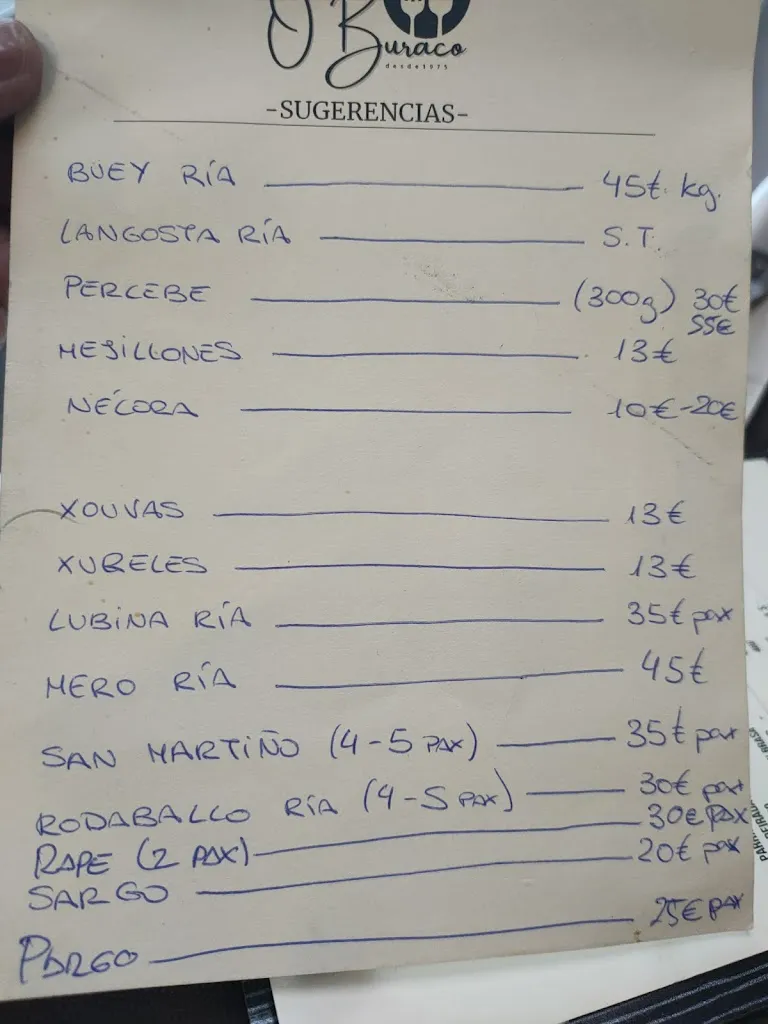 O Buraco
desde1975
-SUGERENCIAS-
BUEY RÍA 45€ kg.
LANGOSTA RÍA S.T.
PERCEBE (300g) 30€
55€
MEJILLONES 13€
NÉCORA 10€-20€
XOUVAS 13€
XUBELES 13€
LUBINA RÍA 35€ pax
MERO RÍA 45€
SAN MARTIÑO (4-5 PAX) 35€ pax
RODABALLO RÍA (4-5 PAX) 30€ pax
RAPE (2 PAX) 30€ PAX
SARGO 20€ pax
PARGO 25€ PAX